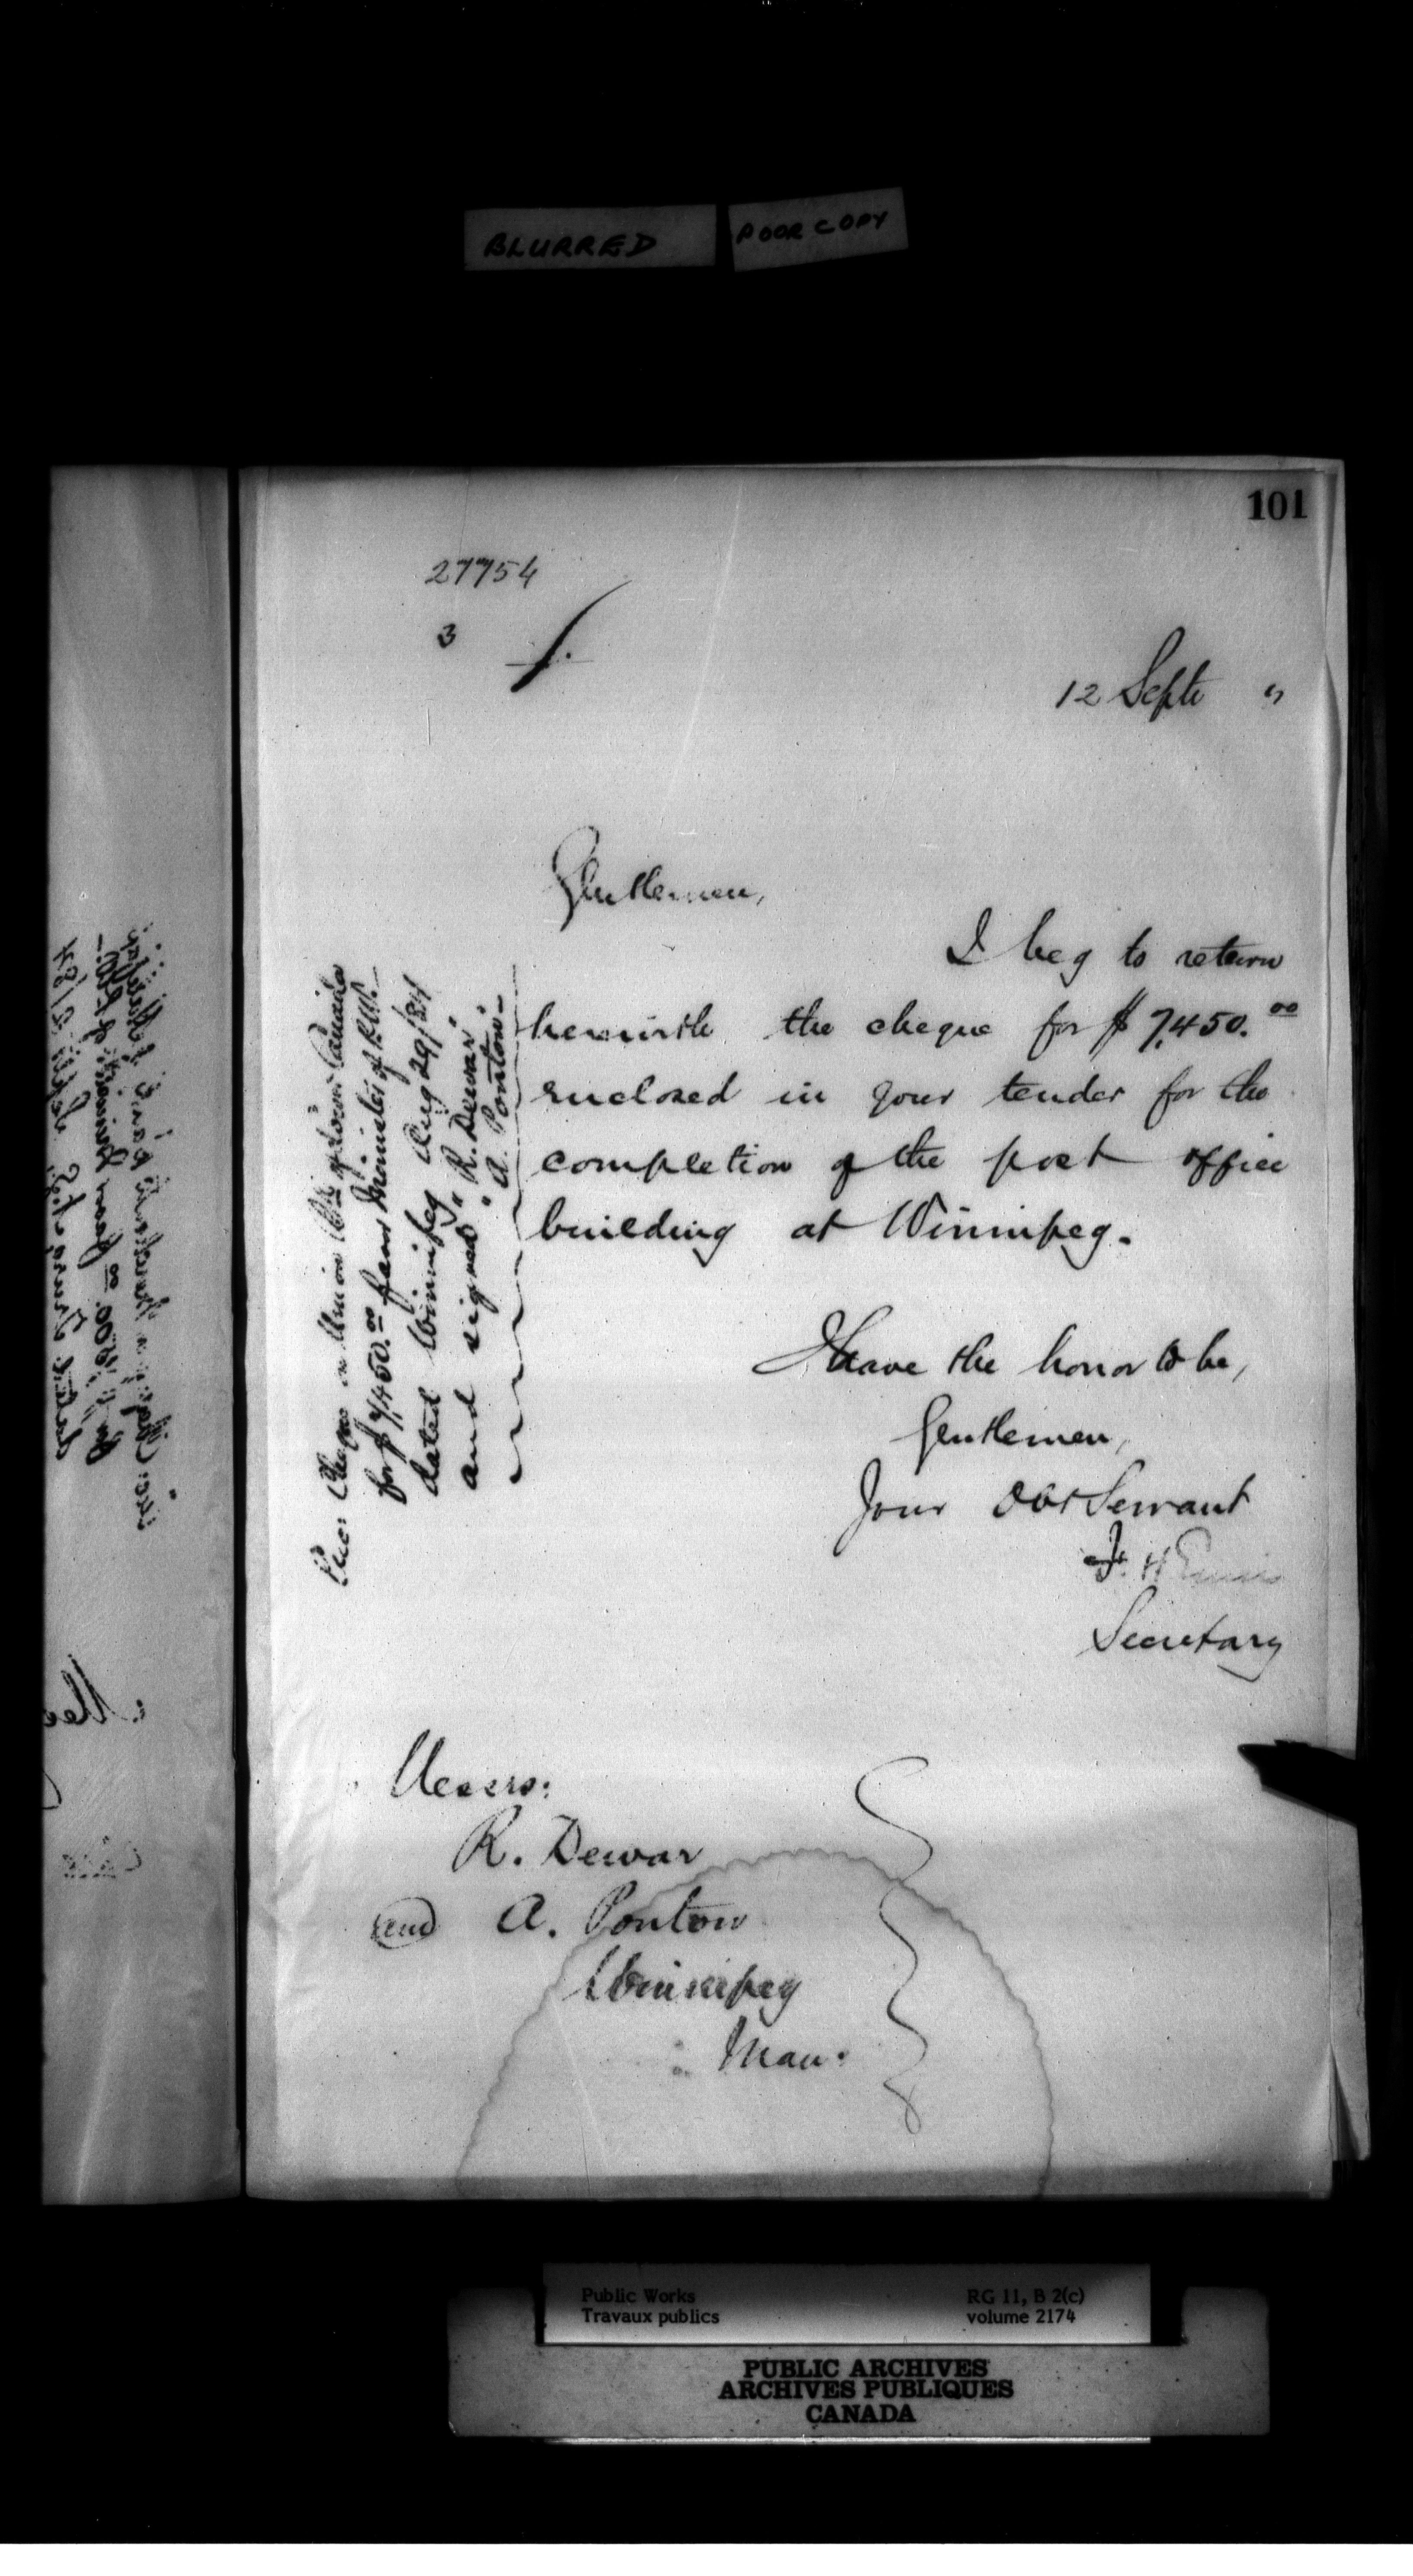 BLURRED POOR COPY
101
27754
3
12 Septr "
Gentlemen,
I beg to return
herewith the cheque for $7,450.00
enclosed in your tender for the
completion of the post office
building at Winnipeg.
I have the honor to be,
Gentlemen,
Your Obt Servant
F. H Ennis
Secretary
Enc: Cheque on Union Bk of Lower Canada
for $7,450.00 favor Minister of P.W.
dated Winnipeg Aug 29/84
and signed "R. Dewar"
"A. Ponton"
Messrs:
R. Dewar
and A. Ponton
Winnipeg
Man.
Public Works
Travaux publics
RG 11, B 2(c)
volume 2174
PUBLIC ARCHIVES
ARCHIVES PUBLIQUES
CANADA